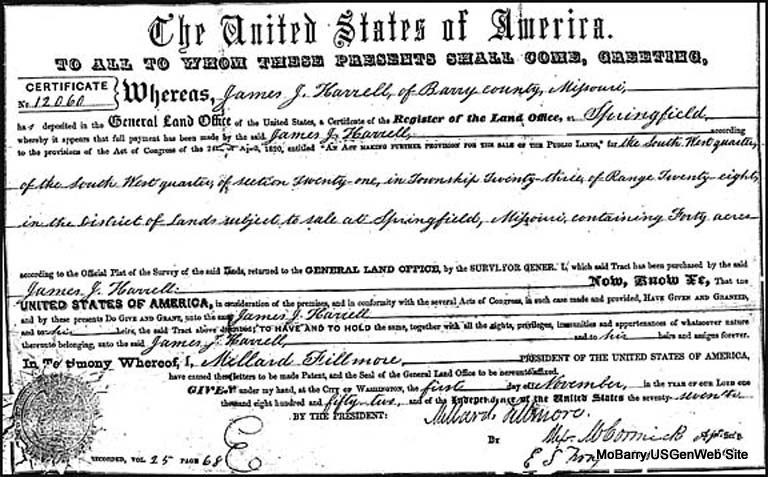 The United States of America.
TO ALL TO WHOM THESE PRESENTS SHALL COME, GREETING,
CERTIFICATE
No. 12060
Whereas, James J. Harrell, of Barry county, Missouri,
has deposited in the General Land Office of the United States, a Certificate of the Register of the Land Office, at Springfield,
whereby it appears that full payment has been made by the said James J. Harrell, according
to the provisions of the Act of Congress of the 24th of April, 1820, entitled "AN ACT MAKING FURTHER PROVISION FOR THE SALE OF THE PUBLIC LANDS," for the South West quarter,
of the South West quarter, of section Twenty-one, in Township Twenty-three, of Range Twenty-eight,
in the District of Lands subject to sale at Springfield, Missouri, containing Forty acres
according to the Official Plat of the Survey of the said Lands, returned to the GENERAL LAND OFFICE, by the SURVEYOR GENERAL, which said Tract has been purchased by the said
James J. Harrell. Now, Know Ye, That the
UNITED STATES OF AMERICA, in consideration of the premises, and in conformity with the several Acts of Congress, in such case made and provided, HAVE GIVEN AND GRANTED,
and by these presents DO GIVE AND GRANT, unto the said James J. Harrell
and to his heirs, the said Tract above described; TO HAVE AND TO HOLD the same, together with all the rights, privileges, immunities and appurtenances of whatsoever nature
thereunto belonging, unto the said James J. Harrell, and to his heirs and assigns forever.
In Testimony Whereof, I, Millard Fillmore, PRESIDENT OF THE UNITED STATES OF AMERICA,
have caused these letters to be made Patent, and the Seal of the General Land Office to be hereunto affixed.
GIVEN under my hand, at the CITY OF WASHINGTON, the first day of November, in the YEAR OF OUR LORD one
thousand eight hundred and fifty two, and of the Independence of the United States the seventy-seventh
BY THE PRESIDENT: Millard Fillmore.
By Alex. McCormick
RECORDED, VOL. 25 PAGE 68 E
MoBarry/USGenWeb Site